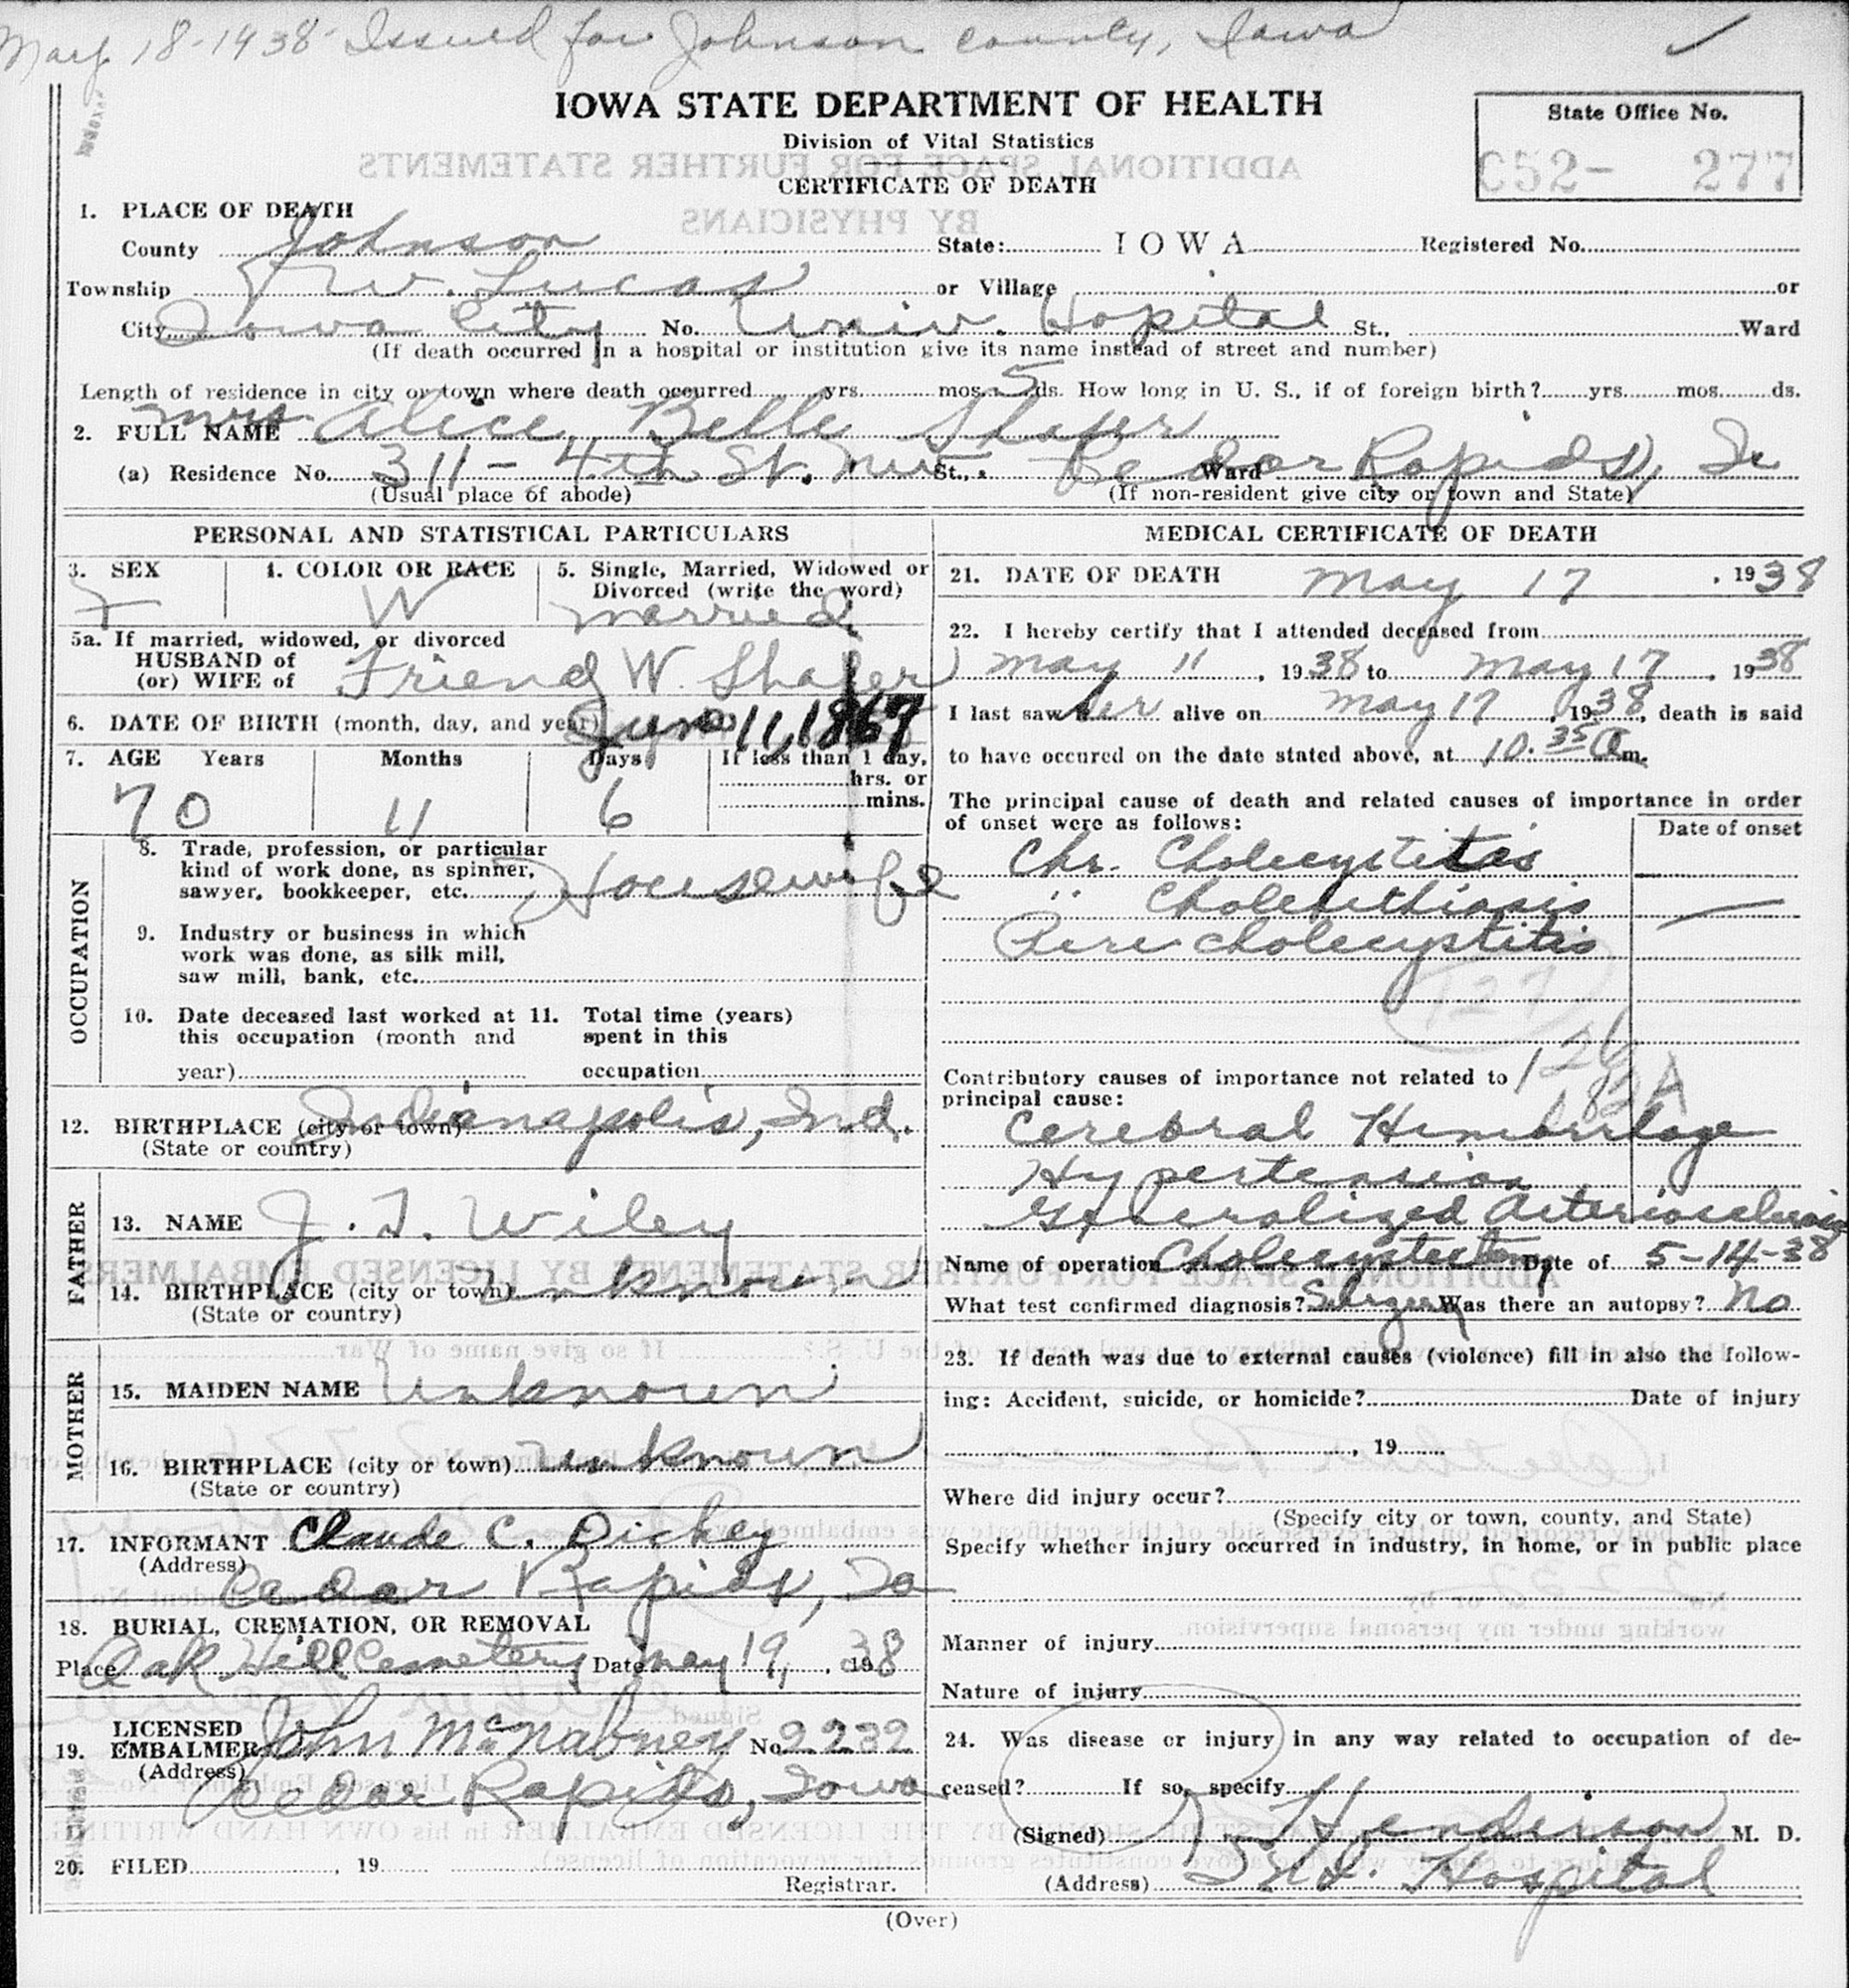 May 18-1938 Issued for Johnson County, Iowa
IOWA STATE DEPARTMENT OF HEALTH
Division of Vital Statistics
CERTIFICATE OF DEATH
State Office No.
C52- 277
1. PLACE OF DEATH
County Johnson State: IOWA Registered No.
Township W. Lucas or Village or
City Iowa City No. Univ. Hopital St., Ward
(If death occurred in a hospital or institution give its name instead of street and number)
Length of residence in city or town where death occurred yrs. mos. 5 ds. How long in U. S., if of foreign birth? yrs. mos. ds.
2. FULL NAME Mrs Alice Belle Shafer
(a) Residence No. 311-4th St. N.W. St., Ward Cedar Rapids, Ia
(Usual place of abode) (If non-resident give city or town and State)
PERSONAL AND STATISTICAL PARTICULARS
3. SEX 4. COLOR OR RACE 5. Single, Married, Widowed or Divorced (write the word)
F W Married
5a. If married, widowed, or divorced
HUSBAND of
(or) WIFE of Friend W. Shafer
6. DATE OF BIRTH (month, day, and year) June 11, 1867
7. AGE Years Months Days If less than 1 day,
hrs. or
mins.
70 11 6
OCCUPATION
8. Trade, profession, or particular
kind of work done, as spinner,
sawyer, bookkeeper, etc. Housewife
9. Industry or business in which
work was done, as silk mill,
saw mill, bank, etc.
10. Date deceased last worked at 11. Total time (years)
this occupation (month and spent in this
year) occupation
12. BIRTHPLACE (city or town) Indianapolis, Ind.
(State or country)
FATHER
13. NAME J. T. Wiley
14. BIRTHPLACE (city or town) Unknown
(State or country)
MOTHER
15. MAIDEN NAME Unknown
16. BIRTHPLACE (city or town) Unknown
(State or country)
17. INFORMANT Claude C. Dickey
(Address) Cedar Rapids, Ia
18. BURIAL, CREMATION, OR REMOVAL
Place Oak Hill Cemetery Date May 19, 1938
19. LICENSED EMBALMER John McNabney No. 2232
(Address) Cedar Rapids, Iowa
20. FILED , 19
Registrar.
MEDICAL CERTIFICATE OF DEATH
21. DATE OF DEATH May 17 , 1938
22. I hereby certify that I attended deceased from
May 11 , 1938 to May 17 , 1938
I last saw her alive on May 17 , 1938, death is said
to have occured on the date stated above, at 10:35 A m.
The principal cause of death and related causes of importance in order
of onset were as follows: Date of onset
Chr. Cholecystitis
" Cholelithiasis
Peri cholecystitis
127
126
82A
Contributory causes of importance not related to
principal cause:
Cerebral Hemorrhage
Hypertension
Generalized Arteriosclerosis
Name of operation Cholecystectomy Date of 5-14-38
What test confirmed diagnosis? Surgery Was there an autopsy? No
23. If death was due to external causes (violence) fill in also the follow-
ing: Accident, suicide, or homicide? Date of injury
, 19
Where did injury occur?
(Specify city or town, county, and State)
Specify whether injury occurred in industry, in home, or in public place
Manner of injury
Nature of injury
24. Was disease or injury in any way related to occupation of de-
ceased? If so, specify
(Signed) Henderson M. D.
(Address) Hospital
(Over)